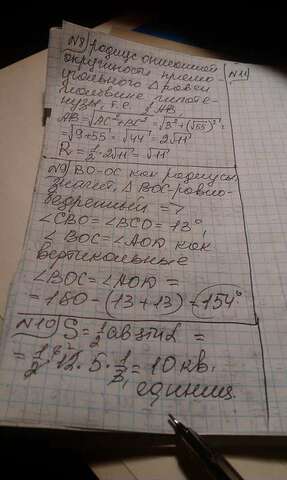 №8) Радиус описанной
окружности прямо-
угольного Δ равен
половине гипоте-
нузы, т.е. ½AB
AB=√AC²+BC²=√3²+(√35)²=
=√9+35=√44=2√11
R=½·2√11=√11
№9) BO=OC как радиусы
значит, ΔBOC-равно-
бедренный =>
∠CBO=∠BCO=13°,
∠BOC=∠AOD как
вертикальные
∠BOC=∠AOD=
=180-(13+13)=154°
№10) S=½ab sinα=
=½·12·5·⅓=10кв.
единиц
№11